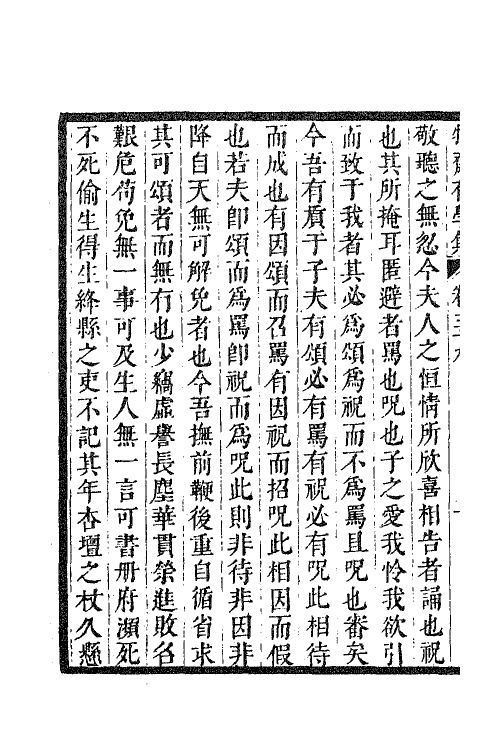 敬聽之無忽今夫人之恒情所欣喜相告者誦也祝
也其所掩耳匿避者罵也呪也子之愛我怜我欲引
而致于我者其必爲頌爲祝而不爲罵且呪也審矣
今吾有質于子夫有頌必有罵有祝必有呪此相待
而成也有因頌而召罵有因祝而招呪此相因而假
也若夫卽頌而爲罵卽祝而爲呪此則非待非因非
降自天無可解免者也今吾撫前鞭後重自循省求
其可頌者而無有也少竊虛譽長塵華貫榮進敗名
艱危苟免無一事可及生人無一言可書册府瀕死
不死偷生得生絳縣之吏不記其年杏壇之杖久懸